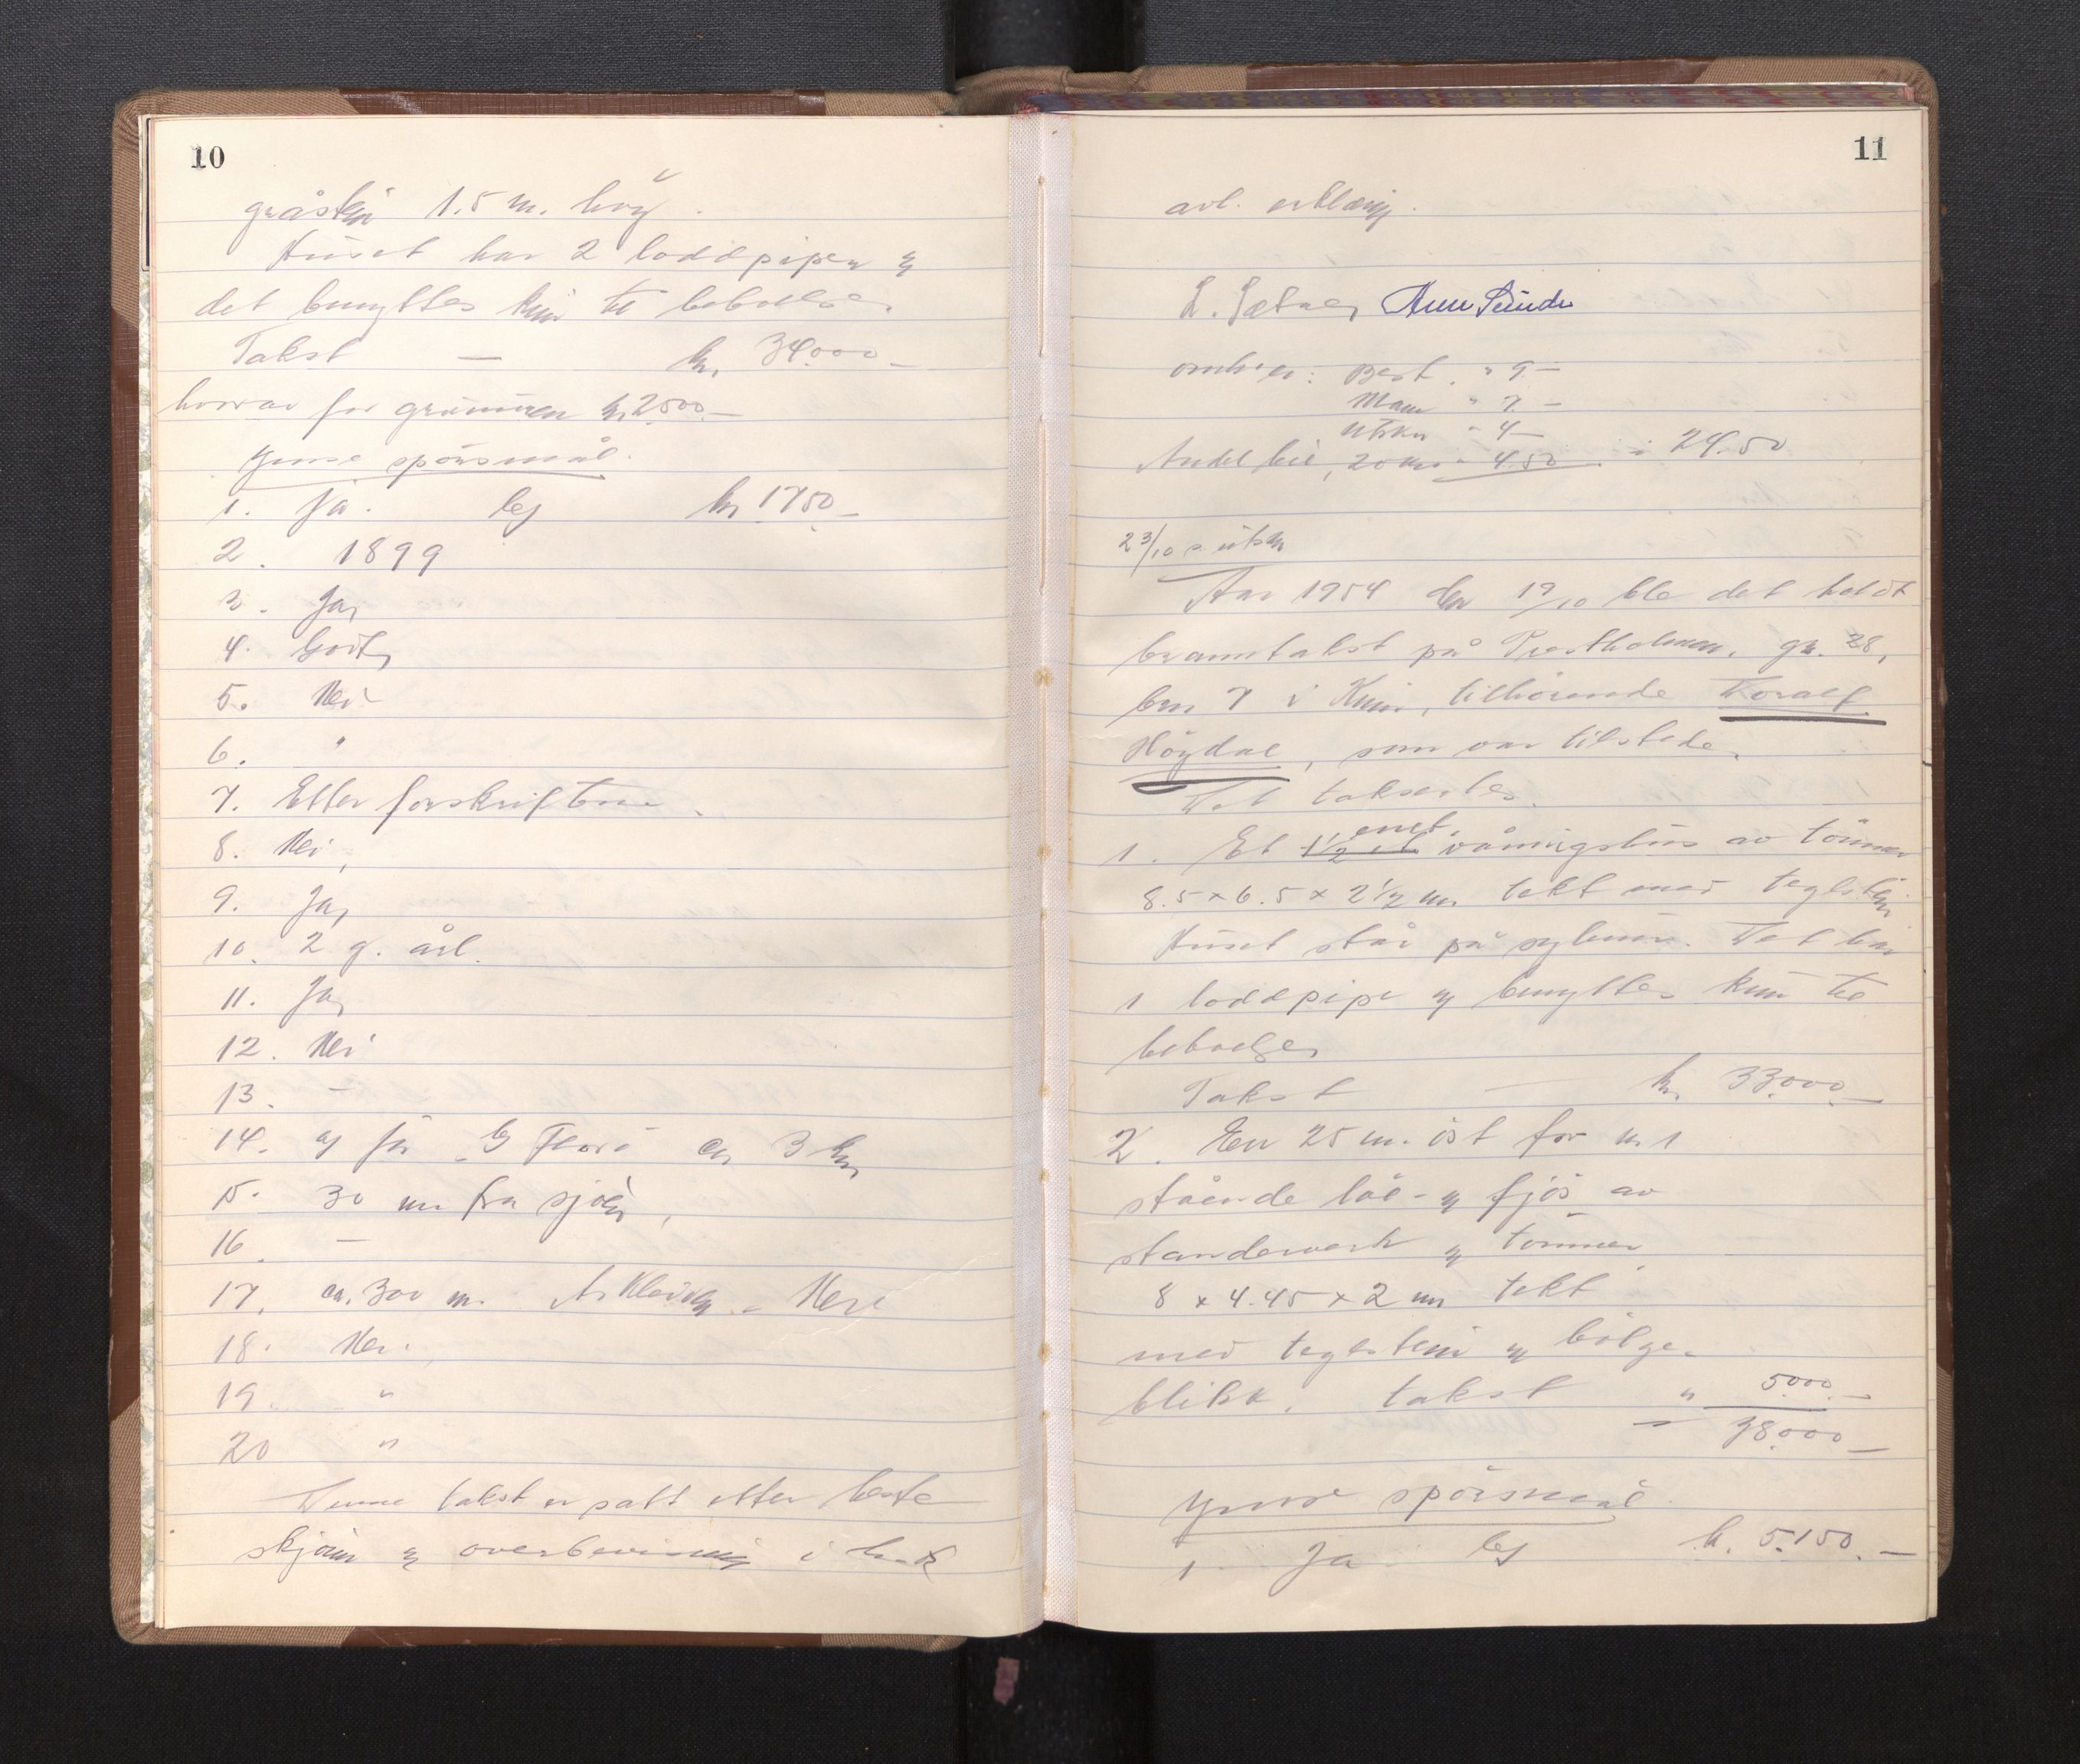 10
gråstein 1.5 m. høy.
Huset har 2 loddpiper og
det benyttes kun til beboelse.
Takst — kr. 34.000 –
hvorav for grunnmuren kr 2000.–
Ymse spørsmål.
1. Ja. lej kr 1750.–
2. 1899
3. Ja,
4. Godt,
5. Nei
6. "
7. Etter forskriftene.
8. Nei,
9. Ja,
10. 2 g. årl.
11. Ja,
12. Nei
13. —
14. Florø ca 3 km
15. 30 m fra sjøen,
16. —
17. ca. 300 m. Nei
18. Nei.
19. "
20 "
Denne takst er satt etter beste
skjønn og overbevisning i h.t.
11
avl. erklæring.
L. Sætre,
omk.er: Best. " 9.–
Mann " 7.–
Utskr " 4–
Andel bil, 20 km " 4.50 = 24.50
23/10 s. utskr
Aar 1954 den 19/10 ble det holdt
branntakst på Prestholmen, gr. 28,
bnr 7 i Kinn, tilhørende Toralf
Høydal, som var tilstede.
Det taksertes.
1. Et 1½ et enet. våningshus av tømmer
8.5 x 6.5 x 2½ m. tekt med teglstein
Huset står på sylmur. Det har
1 loddpipe og benyttes kun til
beboelse,
Takst — kr. 33.000.–
2. En 25 m. øst for nr 1
stående løe- og fjøs av
standerverk og tømmer
8 x 4.45 x 2 m tekt
med teglstein og bølge-
blikk. takst " 5.000.–
= 38.000–
Ymse spørsmål
1. Ja lej k. 5.150.–